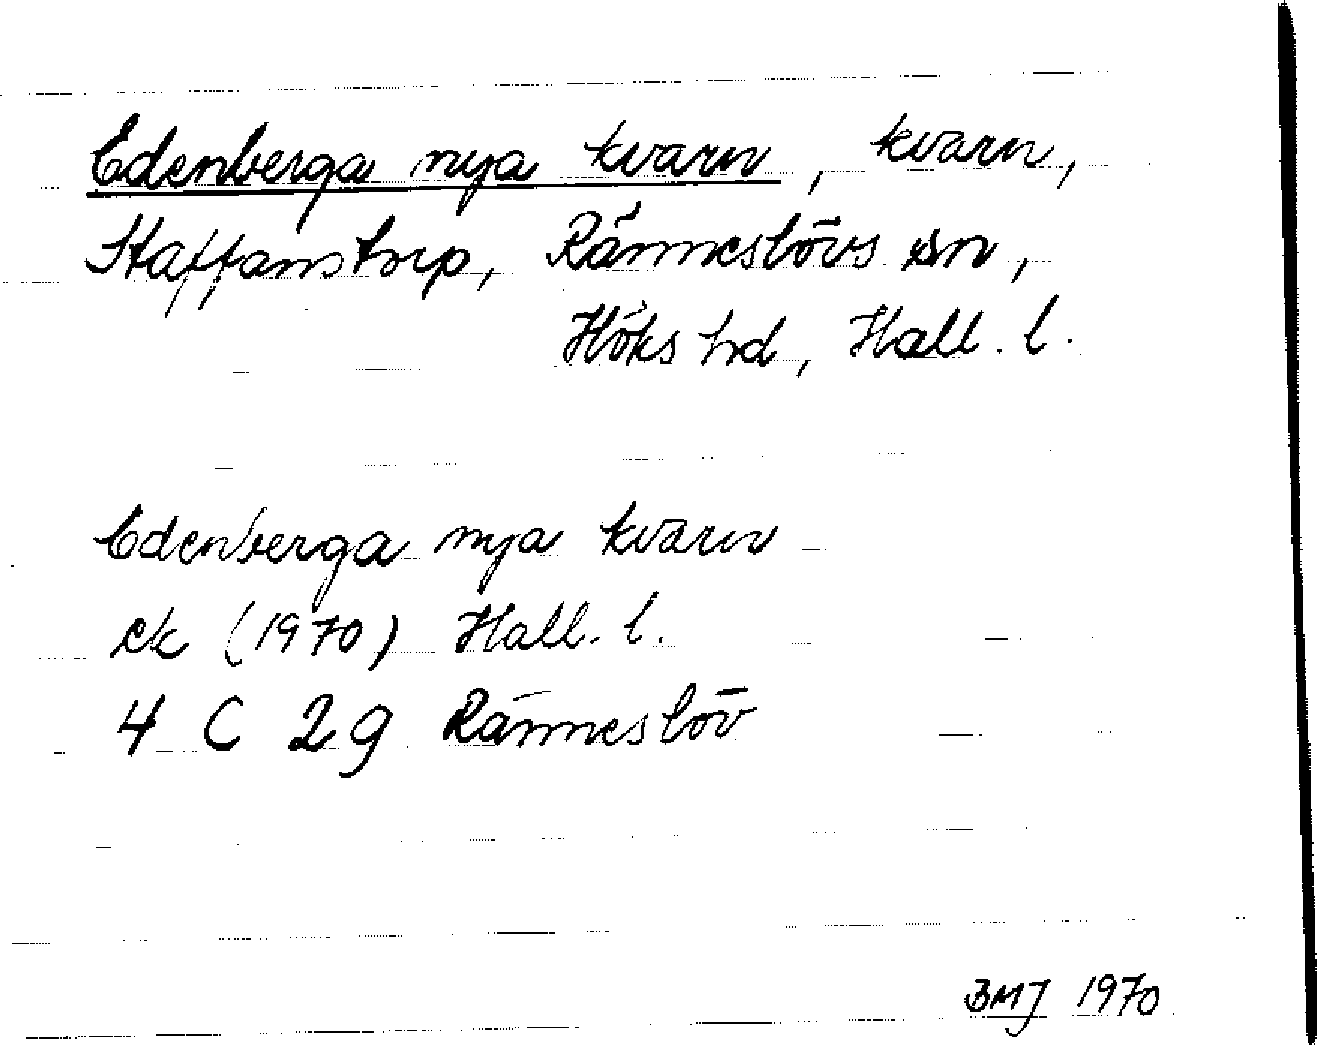 Edenberga nya kvarn, kvarn,
Staffanstorp, Ränneslövs sn,
Höks hd, Hall. l.
Edenberga nya kvarn
ek (1970) Hall. l.
4 C 2g Ränneslöv
BMJ 1970